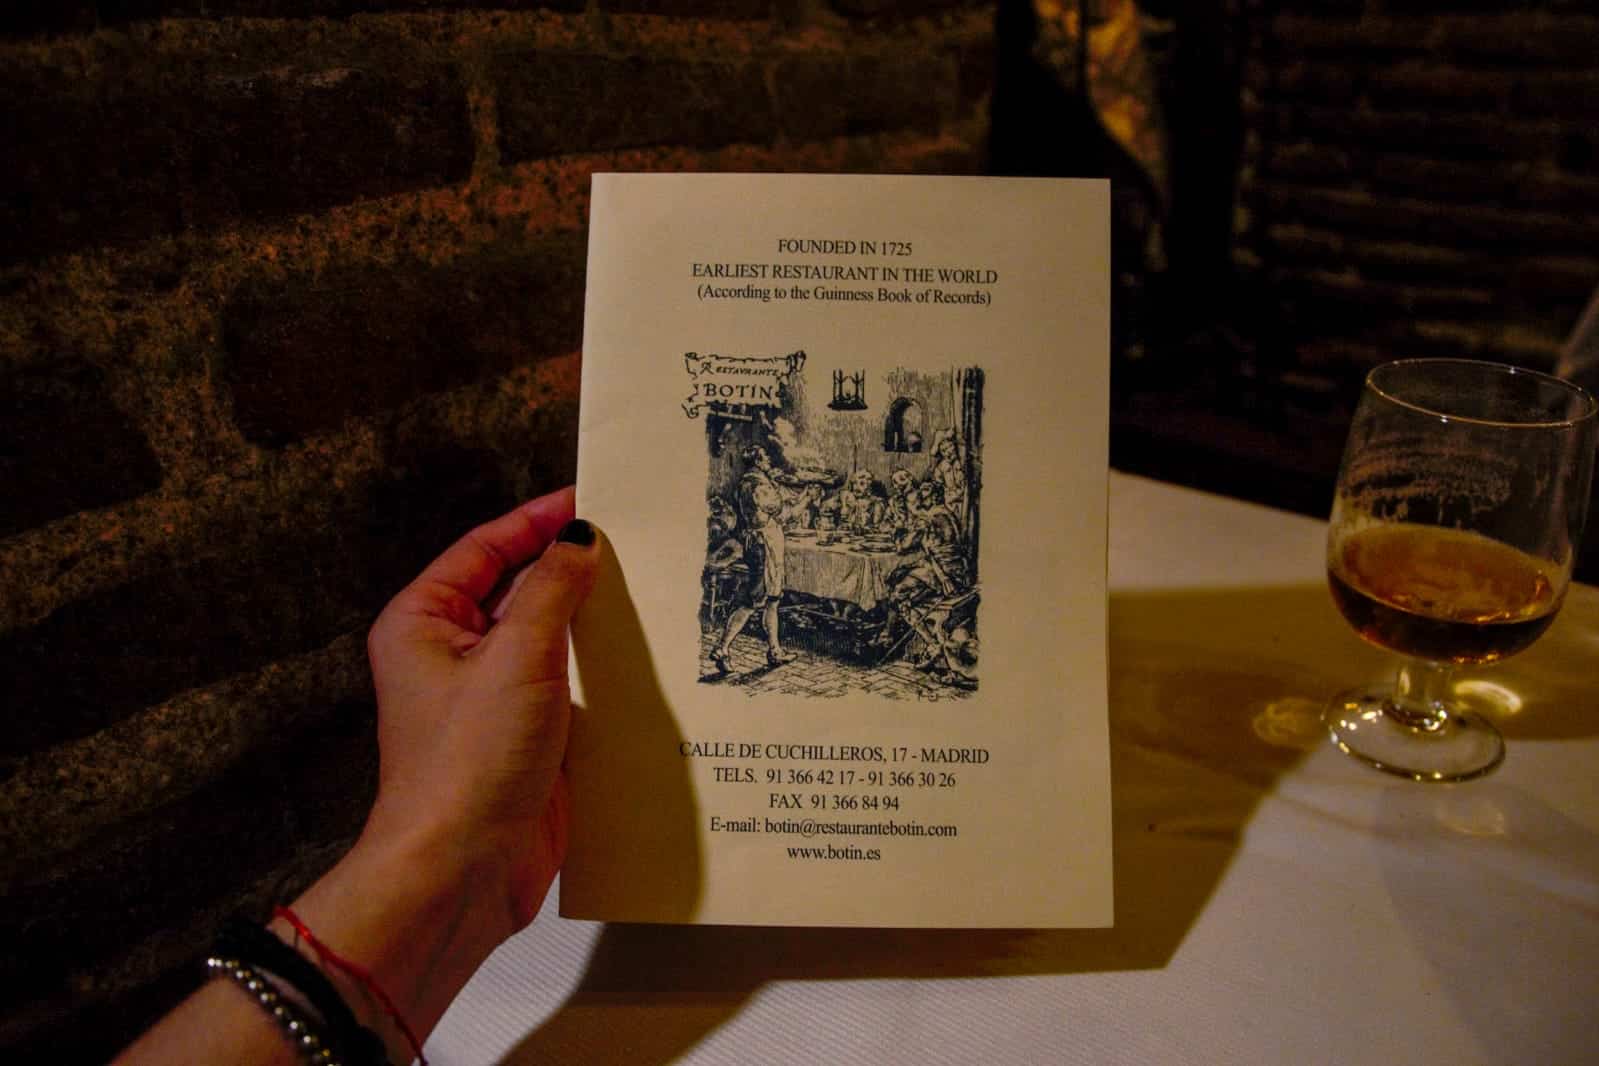 FOUNDED IN 1725
EARLIEST RESTAURANT IN THE WORLD
(According to the Guinness Book of Records)
RESTAVRANTE
BOTIN
CALLE DE CUCHILLEROS, 17 - MADRID
TELS. 91 366 42 17 - 91 366 30 26
FAX 91 366 84 94
E-mail: botin@restaurantebotin.com
www.botin.es